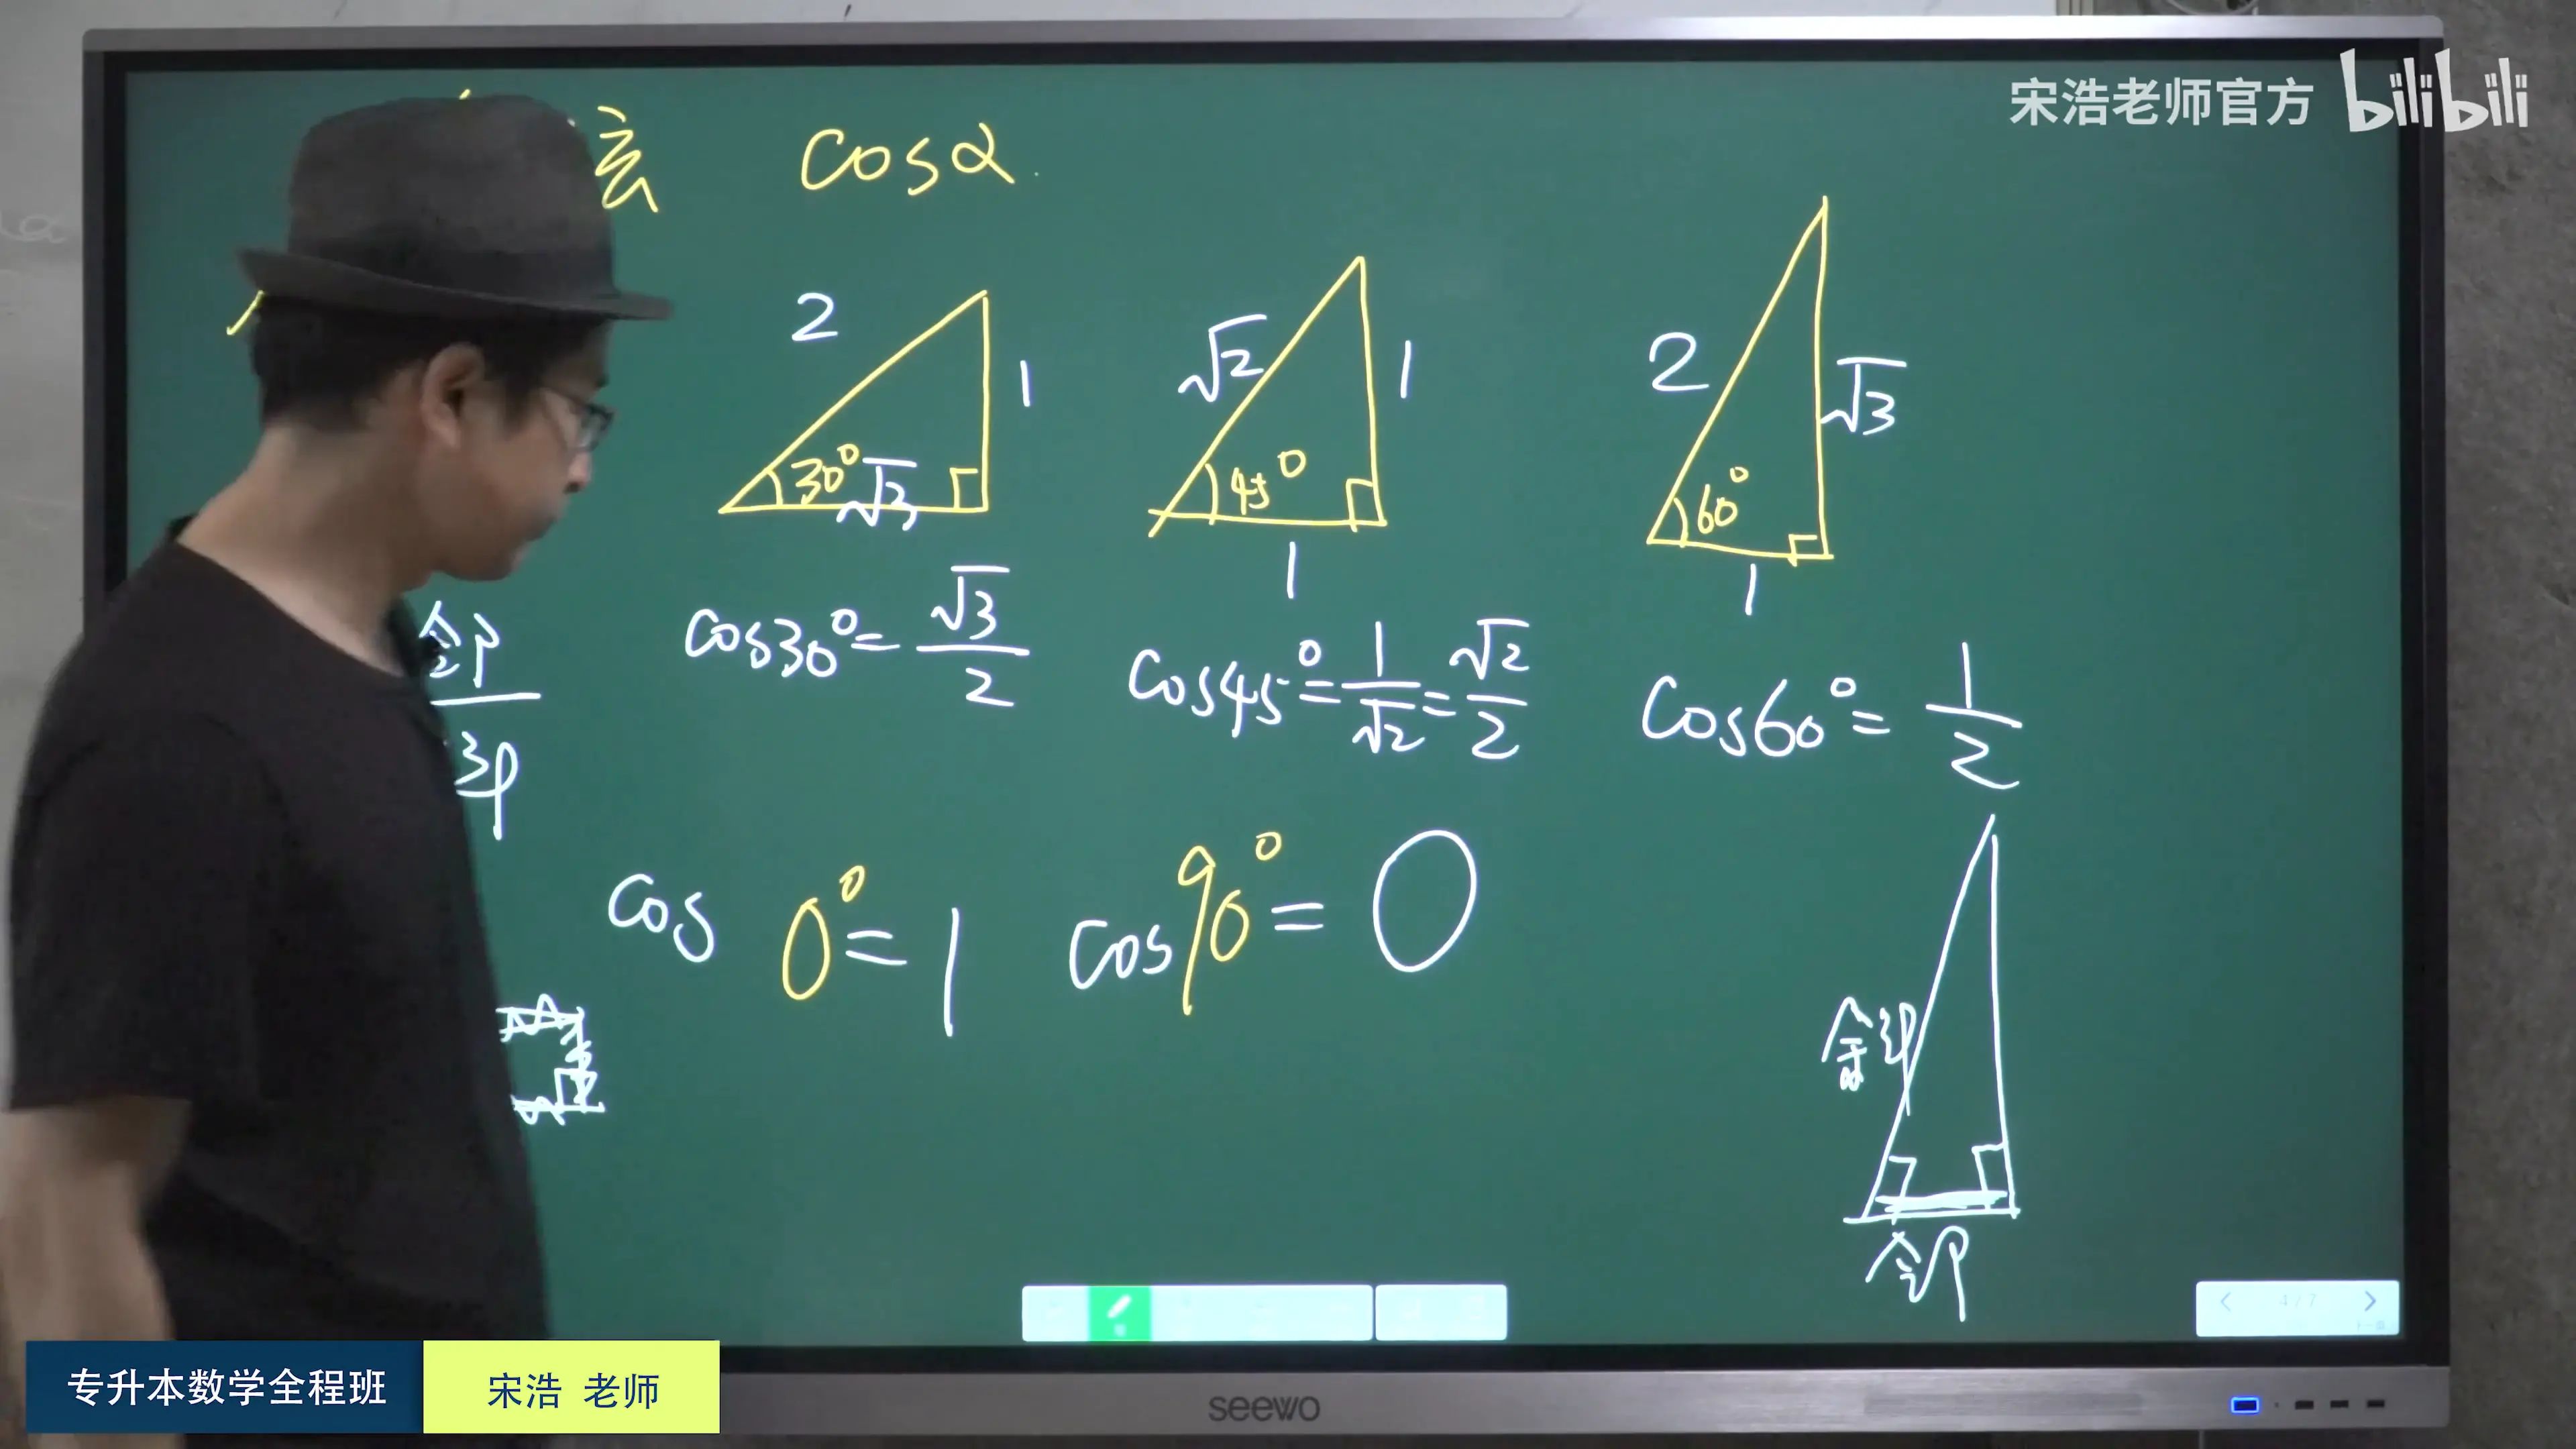 宋浩老师官方 bilibili
弦 cosα
2
1
30°
√3
√2
1
45°
1
2
√3
60°
1
cos30°=√3/2
cos45°=1/√2=√2/2
cos60°=1/2
邻
斜
cos 0°=1
cos90°=0
斜
邻
4/7
专升本数学全程班
宋浩 老师
seewo